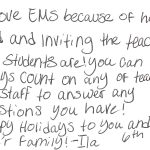 ove EMS because of h
d and Inviting the teac
students are! you can
ys count on any of tea
staff to answer any
stions you have!
py Holidays to you and
r Family! -Ila 6th